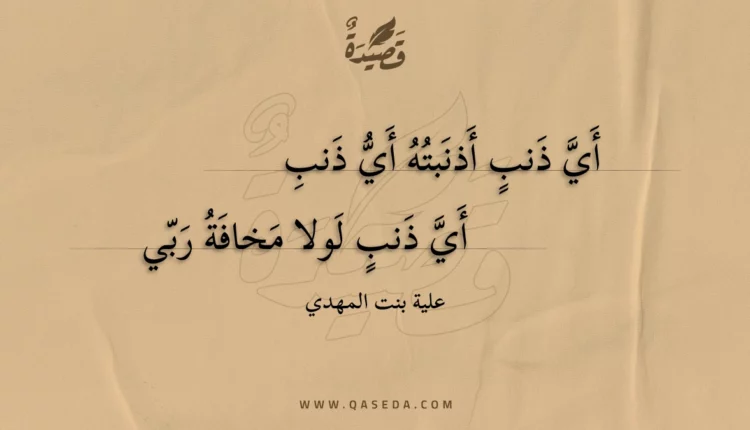 قَصِيدَةٌ
أَيَّ ذَنبٍ أَذنَبتُهُ أَيُّ ذَنبِ
أَيَّ ذَنبٍ لَولا مَخافَةُ رَبّي
علية بنت المهدي
WWW.QASEDA.COM